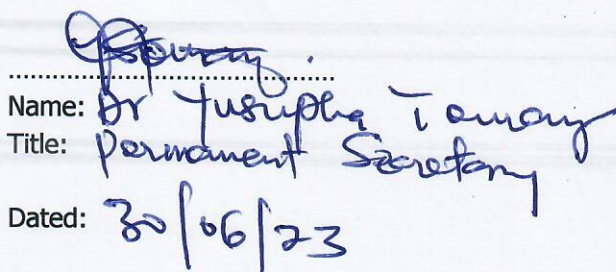 Name: Dr Yusupha Touray
Title: Permanent Secretary
Dated: 30/06/23